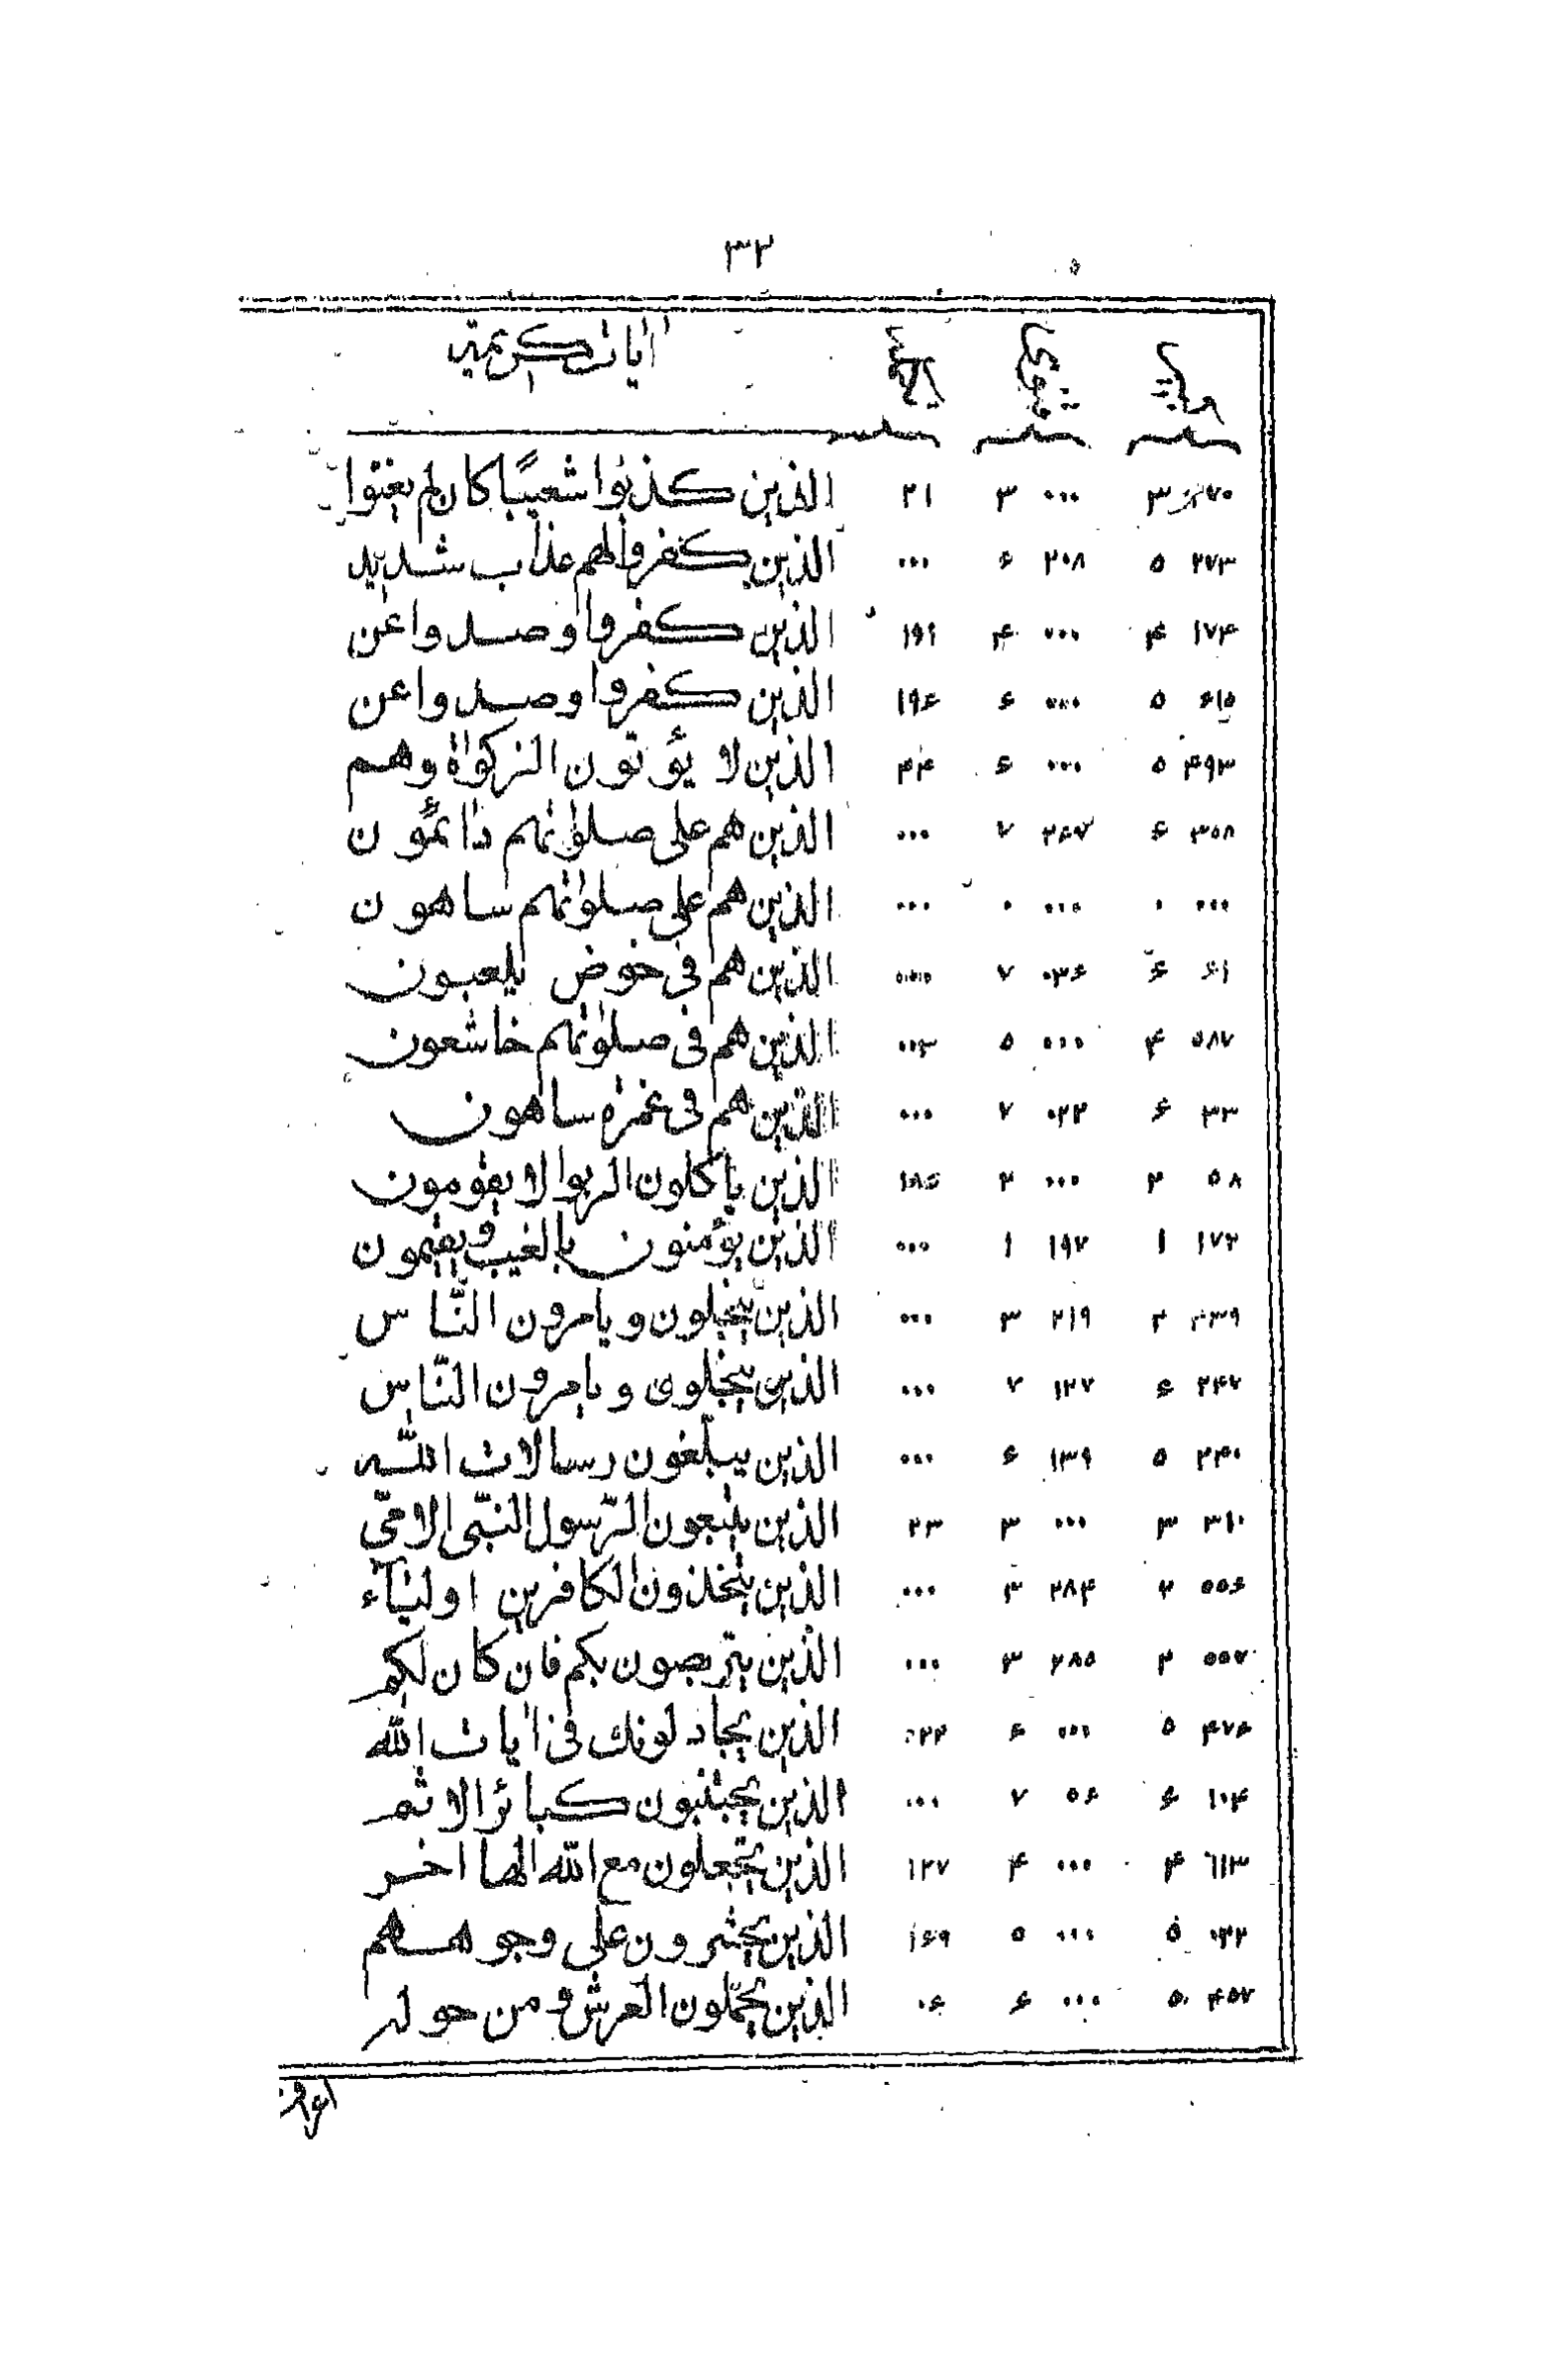 ٣٢
اٰیات کریمه
٣ ٠٠٠ ٣ ٢١ الذین کذبوا شعیبًا کان لم یغنوا
٢٧٣ ٥ ٢٠٨ ۶ ٠٠٠ الذین کفروا لهم عذاب شدید
١٧۴ ۴ ٠٠٠ ۴ ١٩١ الذین کفروا وصدوا عن
۶١٥ ٥ ٠٠٠ ۶ ١٩۶ الذین کفروا وصدوا عن
۴٩٣ ٥ ٠٠٠ ۶ ٢۴ الذین لا یؤتون الزکوٰة وهم
٣٥٨ ۶ ٢۶٧ ٧ ٠٠٠ الذین هم علی صلوٰتهم دائمون
٠٠٠ ٠ ٠٠٠ ٠ ٠٠٠ الذین هم علی صلوٰتهم ساهون
۶١ ۶ ٠٣۶ ٧ ٠٠٠ الذین هم فی خوض یلعبون
٥٨٧ ۴ ٠٠٠ ٥ ٠٠٣ الذین هم فی صلوٰتهم خاشعون
٣٣ ۶ ٠٢٢ ٧ ٠٠٠ الذین هم فی غمرة ساهون
٥٨ ٢ ٠٠٠ ٢ ١٨۶ الذین یأکلون الربوا لا یقومون
١٧٢ ١ ١٩٧ ١ ٠٠٠ الذین یؤمنون بالغیب ویقیمون
٢ ٢١٩ ٣ ٠٠٠ الذین یبخلون ویامرون النّاس
٢۴٧ ۶ ١٢٧ ٧ ٠٠٠ الذین یبخلون ویامرون النّاس
٢۴٠ ٥ ١٣٩ ۶ ٠٠٠ الذین یبلّغون رسالات اللّه
٣١٠ ٣ ٠٠٠ ٣ ٢٣ الذین یتبعون الرّسول النبّی الامّی
٥٥۶ ٢ ٢٨۴ ٣ ٠٠٠ الذین یتخذون الکافرین اولیآء
٥٥٧ ٢ ٢٨٥ ٣ ٠٠٠ الذین یتربصون بکم فان کان لکم
۴٧۶ ٥ ٠٠٠ ۶ ٠٢٢ الذین یجادلونك فی اٰیات اللّه
١٠۴ ۶ ٥۶ ٧ ٠٠٠ الذین یجتنبون کبائر الاثم
٦١٣ ۴ ٠٠٠ ۴ ١٢٧ الذین یجعلون مع اللّه الها اخر
٠٣٢ ٥ ٠٠٠ ٥ ١۶٩ الذین یحشرون علی وجوههم
۴٥٧ ٥ ٠٠٠ ۶ ٠۶ الذین یحملون العرش ومن حوله